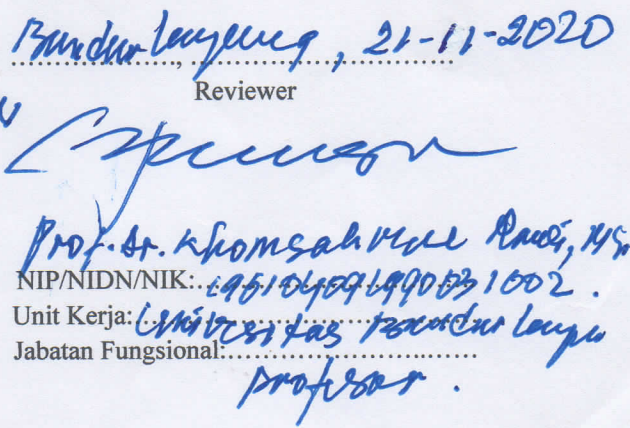 Bandar Lampung, 21-11-2020
Reviewer
Prof. Dr. Khomsahrial Romli, M.Si
NIP/NIDN/NIK: 196104091990031002.
Unit Kerja: Universitas Bandar Lampu
Jabatan Fungsional:
Profesor.